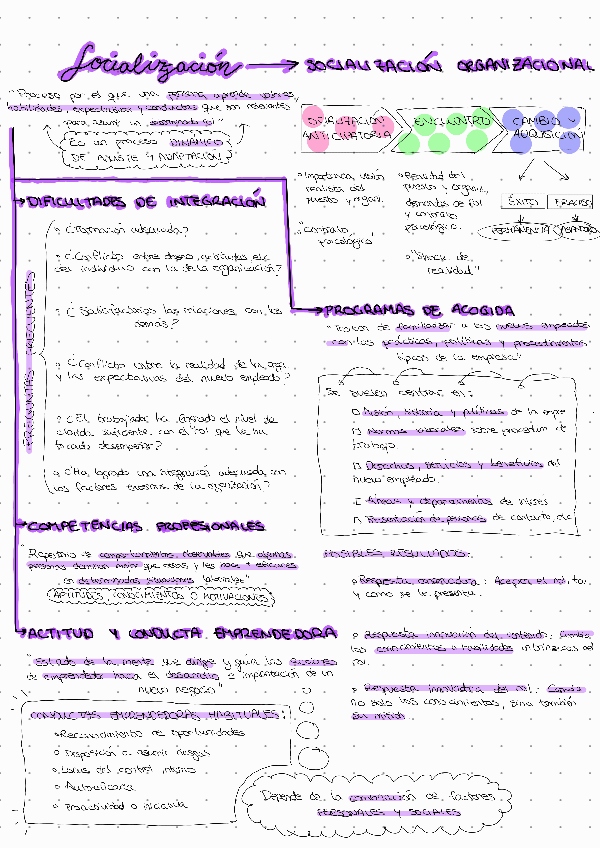 Socialización → SOCIALIZACIÓN ORGANIZACIONAL
"Proceso por el que una persona aprende valores,
habilidades, expectativas y conductas que son relevantes
para asumir un
Es un proceso DINÁMICO
DE AJUSTE Y ADAPTACIÓN
SOCIALIZACIÓN
ANTICIPATORIA
ENCUENTRO
CAMBIO Y
ADQUISICIÓN
"Importancia visión
realista del
puesto y organi.
"Contrato
psicológico"
Realidad del
puesto y organi,
demandas de rol
y contrato
psicológico.
"Shock de
realidad"
ÉXITO
FRACASO
PERMANENCIA
ABANDONO
DIFICULTADES DE INTEGRACIÓN
PREGUNTAS FRECUENTES
¿Formación adecuada?
¿Conflicto entre deseos, actitudes, etc
del individuo con la de la organización?
¿Satisfactorias las relaciones con los
demás?
¿Conflicto entre la realidad de la orga.
y las expectativas del nuevo empleado?
¿El trabajador ha logrado el nivel de
ajuste suficiente con el rol que le ha
tocado desempeñar?
¿Ha logrado una integración adecuada con
los factores externos de la organización?
PROGRAMAS DE ACOGIDA
"Tratan de familiarizar a los nuevos empleados
con las prácticas, políticas y procedimientos
típicos de la empresa"
Se suelen centrar en:
Misión, historia y políticas de la empre
Normas laborales sobre procesos de
trabajo
Derechos, servicios y beneficios del
nuevo empleado.
Áreas y departamentos de interés
Presentación de personas de contacto, etc
COMPETENCIAS PROFESIONALES
"Repertorio de comportamientos observables que algunas
personas dominan mejor que otras y les hace + eficaces
en determinadas situaciones laborales"
APTITUDES, CONOCIMIENTOS O MOTIVACIONES
POSIBLES RESULTADOS:
Respuesta conservadora: Aceptar el rol, tal
y como se le presenta.
Respuesta innovación del contenido: Cambia
los conocimientos o habilidades intrínsecas del
rol.
Respuesta innovadora del rol: Cambia
no solo los conocimientos, sino también
su misión
ACTITUD Y CONDUCTA EMPRENDEDORA
"Estado de la mente que dirige y guía las acciones
de emprendedor hacia el desarrollo e implantación de un
nuevo negocio"
CONDUCTAS EMPRENDEDORAS HABITUALES:
Reconocimiento de oportunidades
Disposición a asumir riesgos
Locus del control interno
Autoeficacia
Proactividad o iniciativa
Depende de la combinación de factores
PERSONALES Y SOCIALES